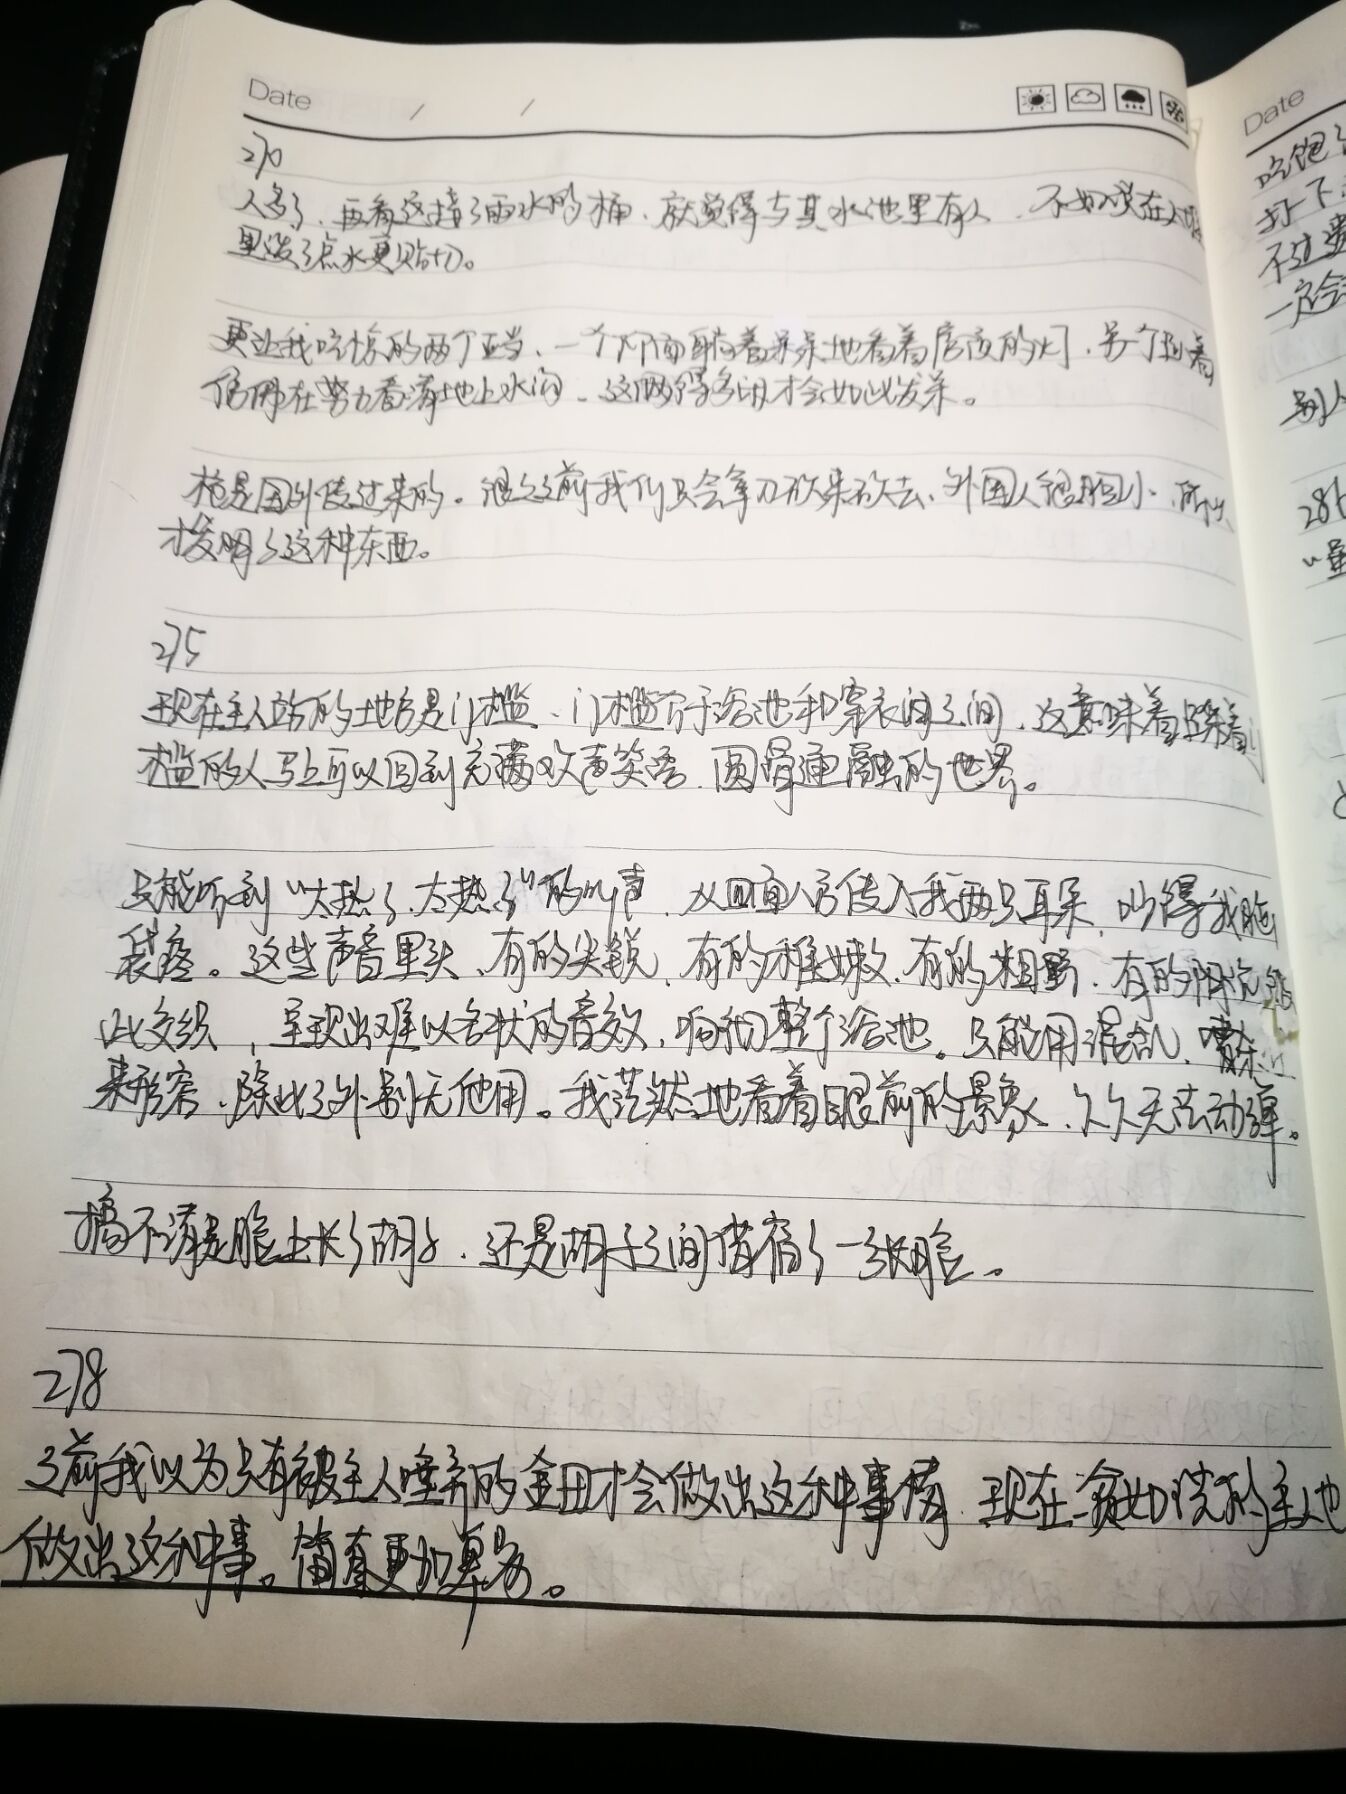 Date / /
270
人多了、再看这接了雨水的桶、就觉得与其水池里有人、不如说在人
里泼了点水更贴切。
更让我吃惊的两个 、一个 着呆呆地看着房顶的灯、另一个 着
在努力看清地上水沟、这两得多 才会如此发呆。
枪是国外传过来的。很久之前我们只会拿刀砍来砍去、外国人很胆小、所以
才发明了这种东西。
275
现在主人站的地方是门槛、门槛介于浴池和穿衣间之间、这意味着踩着门
槛的人马上可以回到充满欢声笑语、圆滑通融的世界。
只能听到“太热了、太热了”的叫声、从四面八方传入我两只耳朵、吵得我脑
袋疼。这些声音里头、有的尖锐、有的稚嫩、有的粗野、有的
此交织、呈现出难以名状的音效、响彻整个浴池。只能用混乱、嘈杂
来形容、除此之外别无他用。我茫然地看着眼前的景象、久久无法动弹。
搞不清是脸上长了胡子、还是胡子之间借宿了一张脸。
278
之前我以为只有被主人唾弃的金田才会做出这种事情、现在 如洗的主人也
做出这种事。简直更加卑劣。
Date
吃饱
打一下
不过
一定会
别人
286